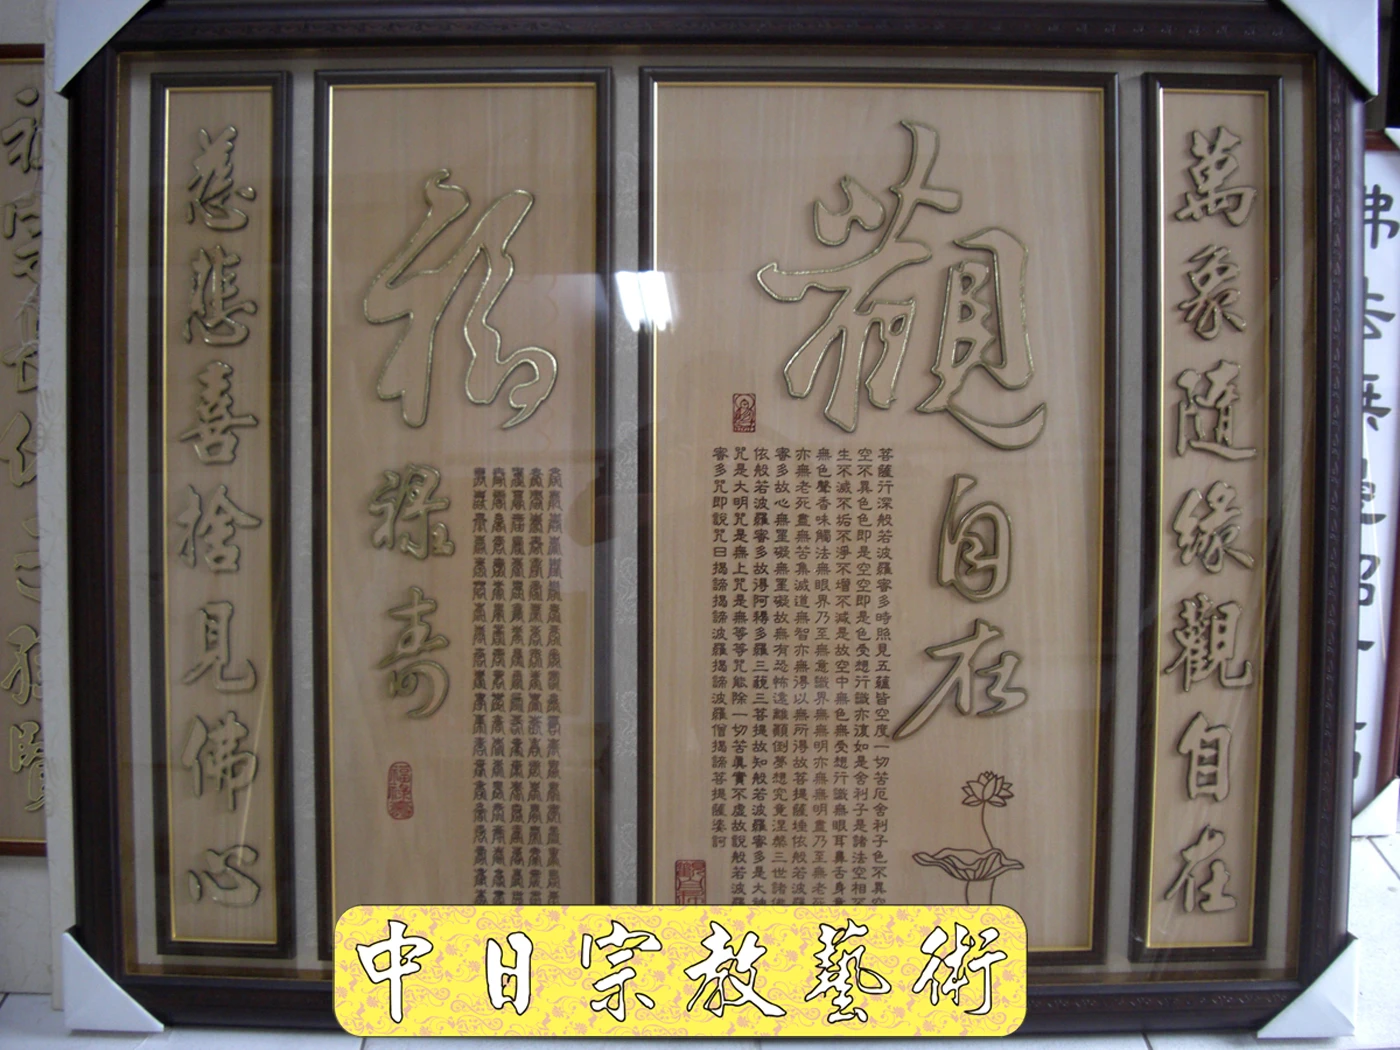 萬象隨緣觀自在
觀自在
菩薩行深般若波羅蜜多時照見五蘊皆空度一切苦厄舍利子色不異空
空不異色色即是空空即是色受想行識亦復如是舍利子是諸法空相不
生不滅不垢不淨不增不減是故空中無色無受想行識無眼耳鼻舌身意
無色聲香味觸法無眼界乃至無意識界無無明亦無無明盡乃至無老死
亦無老死盡無苦集滅道無智亦無得以無所得故菩提薩埵依般若波羅
蜜多故心無罣礙無罣礙故無有恐怖遠離顛倒夢想究竟涅槃三世諸佛
依般若波羅蜜多故得阿耨多羅三藐三菩提故知般若波羅蜜多是大神
咒是大明咒是無上咒是無等等咒能除一切苦真實不虛故說般若波羅
蜜多咒即說咒曰揭諦揭諦波羅揭諦波羅僧揭諦菩提薩婆訶
福
祿壽
福祿壽
慈悲喜捨見佛心
中日宗教藝術